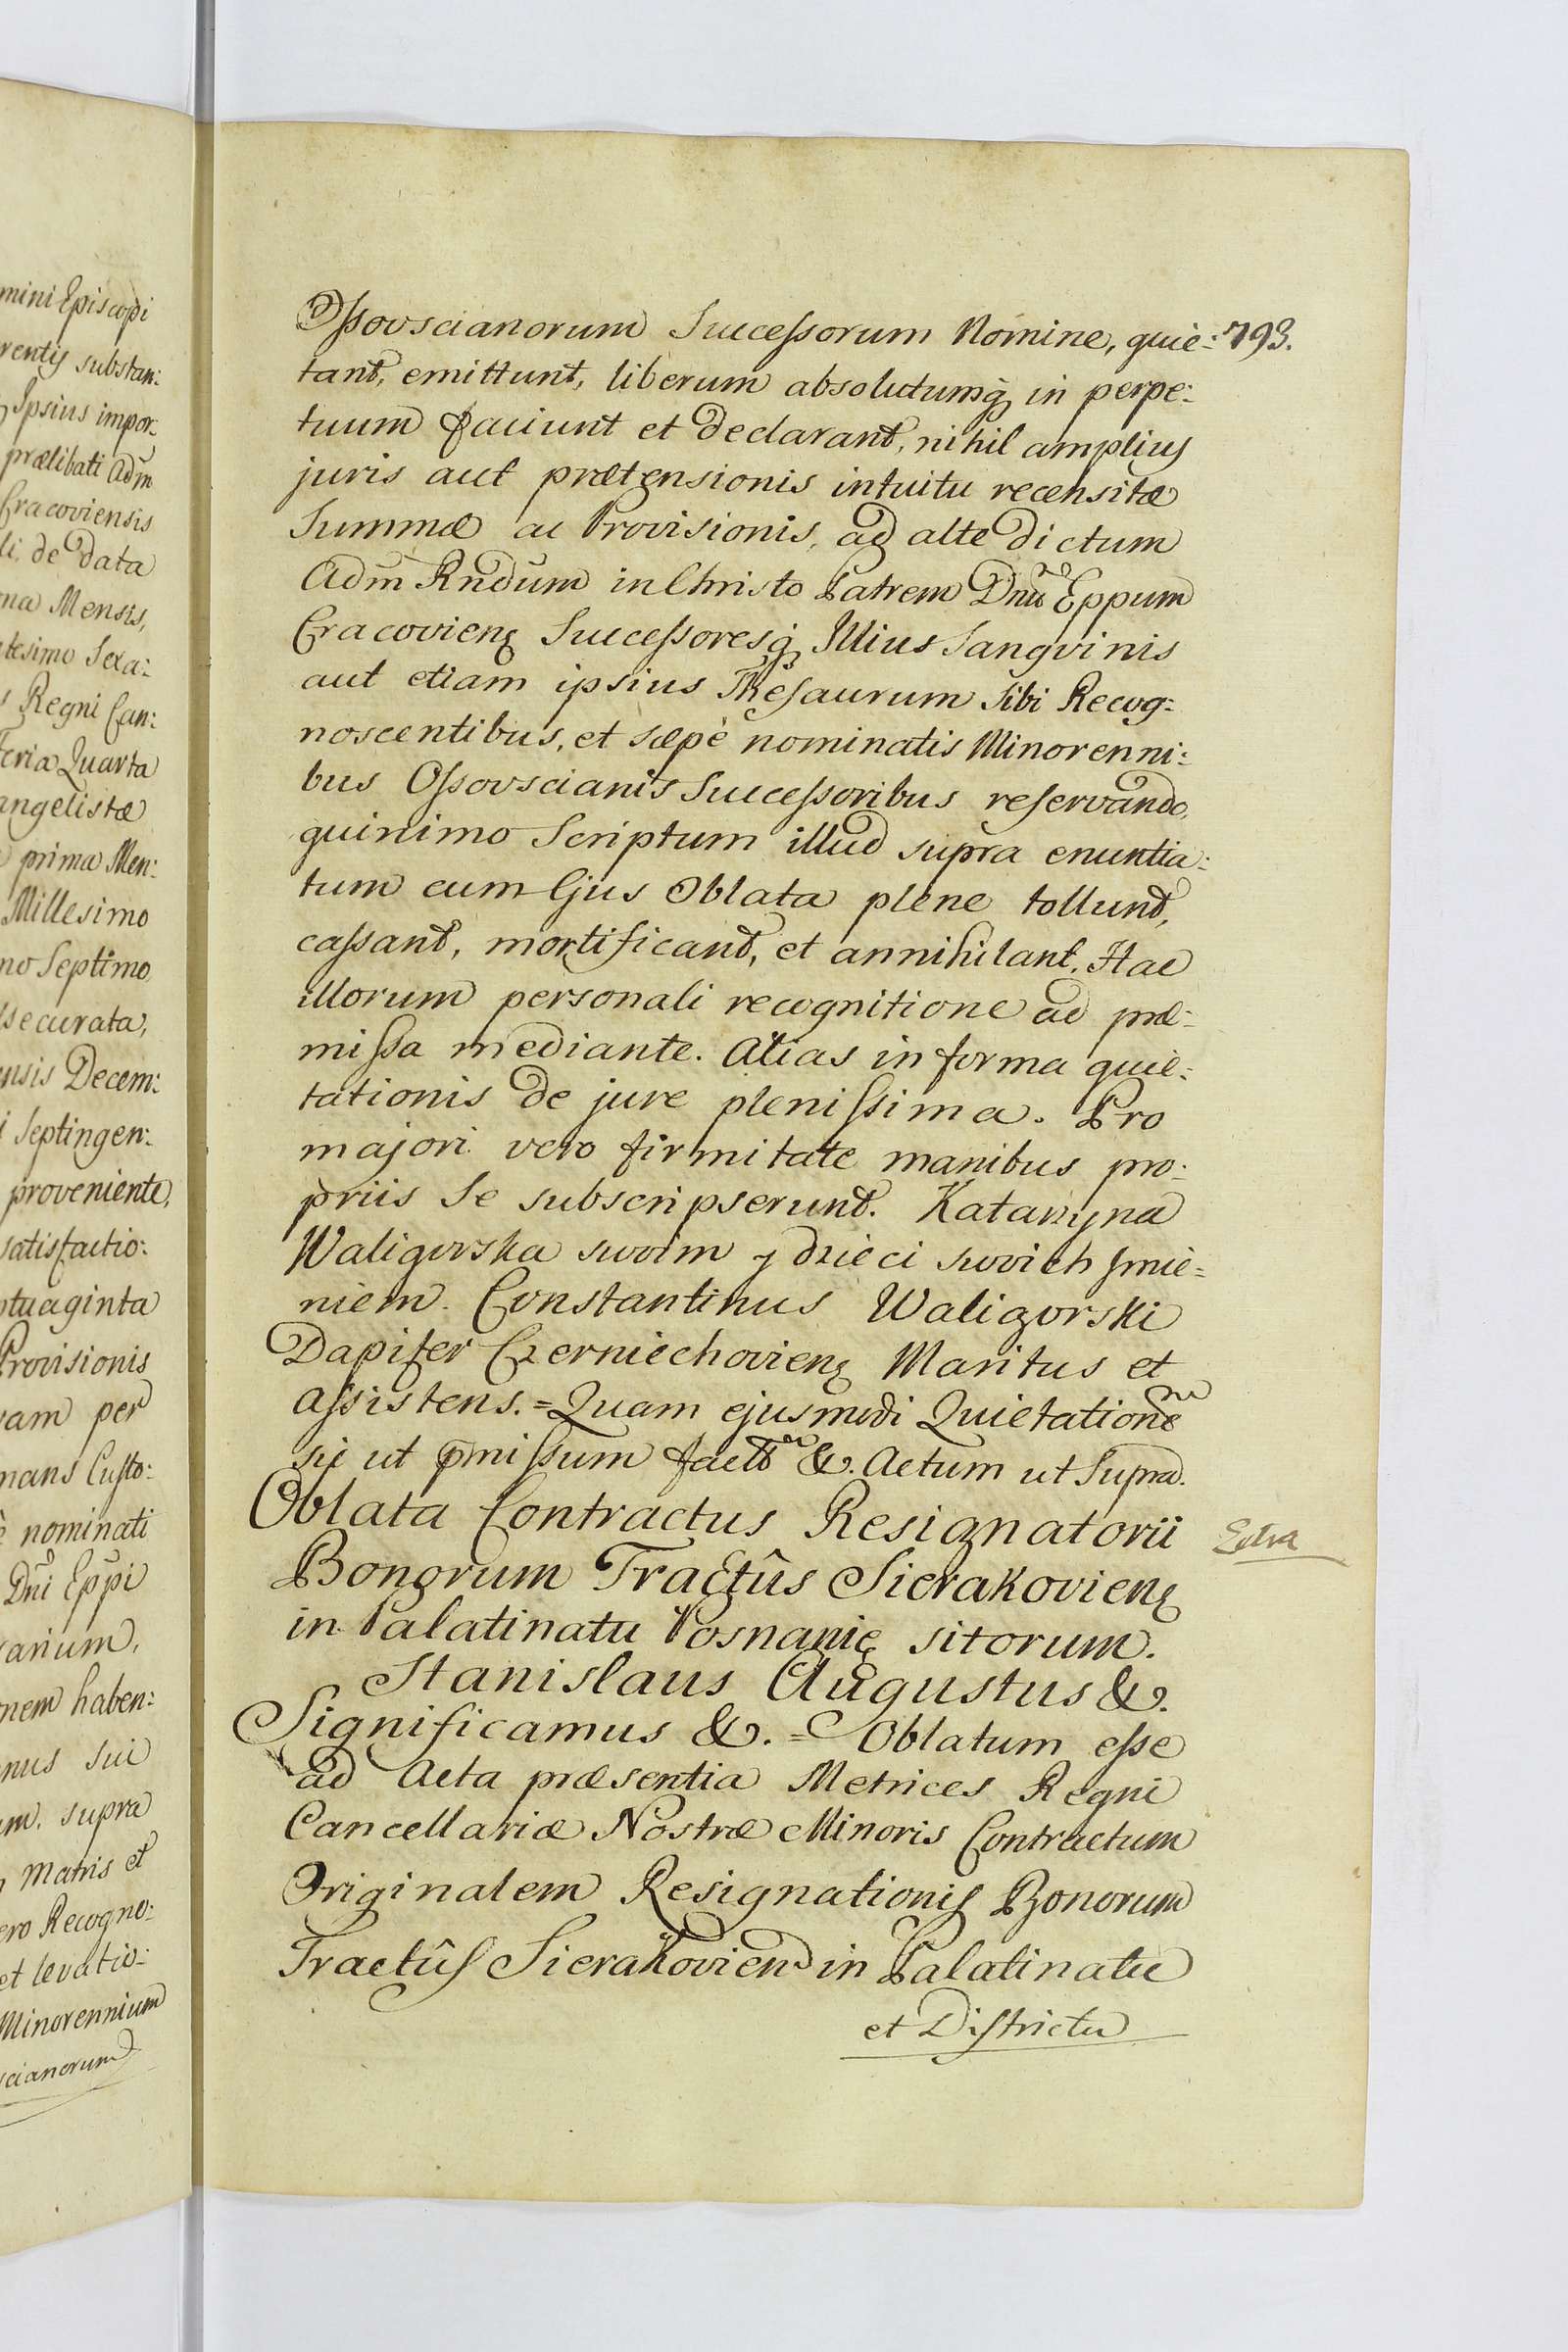 mini Episcopi
rentis substan:
Ipsius impor:
prælibati Adm
Cracoviensis
li, de Data
na Mensis,
tesimo Sexa:
Regni Can:
Feria Quarta
angelistæ
prima Men:
Millesimo
no Septimo
ssecurata,
ensis Decem:
i Septingen:
proveniente,
satisfactio:
ptuaginta
Provisionis
vam per
mans Custo:
è nominati
Dni Eppi
rarium,
nem haben:
nus sui
um, supra
Matris et
ero Recogno:
et levatio:
Minorennium
scianorum
793.
Ossovscianorum Successorum Nomine, quie:
tant, emittunt, liberum absolutumq in perpe:
tuum faciunt et declarant, nihil amplius
juris aut prætensionis intuitu recensitæ
Summæ ac Provisionis, ad alte dictum
Adm Rndum in Christo Patrem Dnum Eppum
Cracovien Successoresq Illius Sangvinis
aut etiam ipsius Thesaurum sibi Recog:
noscentibus, et sæpè nominatis Minorenni:
bus Ossovscianis Successoribus reservando,
quinimo Scriptum illud supra enuntia:
tum cum Ejus Oblata plene tollunt,
cassant, mortificant, et annihilant, Hac
illorum personali recognitione ad præ:
missa mediante. Alias in forma quie:
tationis de jure plenissima. Pro
majori vero firmitate manibus pro:
priis Se subscripserunt. Katarzyna
Waligorska swoim y dzieci swoich Jmie:
niem. Constantinus Waligorski
Dapifer Czerniechovien Maritus et
assistens. = Quam ejusmodi Quietationem
sic ut pmissum facta &. Actum ut Supra.
Oblata Contractus Resignatorii
Bonorum Tractûs Sierakovien
in Palatinatu Posnanię sitorum.
Stanislaus Augustus &.
Significamus &. = Oblatum esse
ad Acta præsentia Metrices Regni
Cancellariæ Nostræ Minoris Contractum
Originalem Resignationis Bonorum
Tractûs Sierakovien in Palatinatu
et Districtu